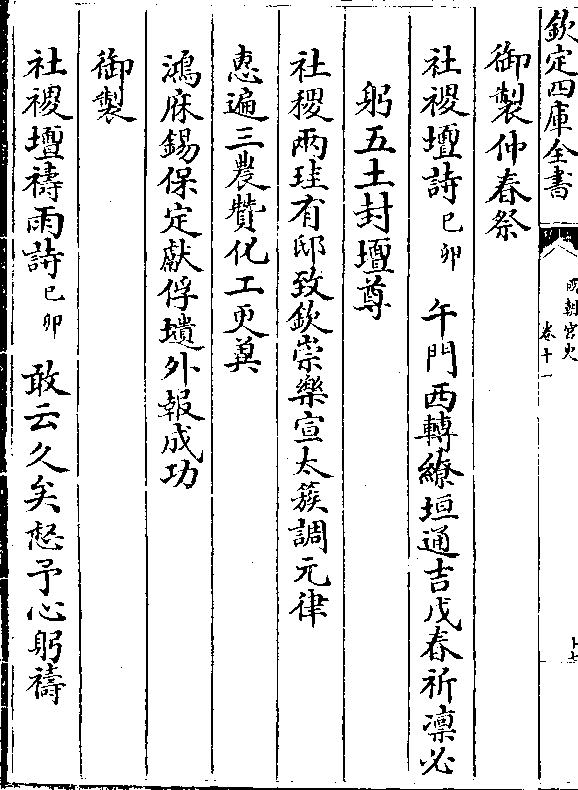 欽定四庫全書
國朝宮史
卷十一
御製仲春祭
社稷壇詩己卯 午門西轉繚垣通吉戊春祈凛必
躬五土封壇尊
社稷兩珪有邸致欽崇樂宣太簇調元律
惠遍三農贊化工更冀
鴻庥錫保定獻俘壝外報成功
御製
社稷壇禱雨詩己卯 敢云久矣慰予心躬禱